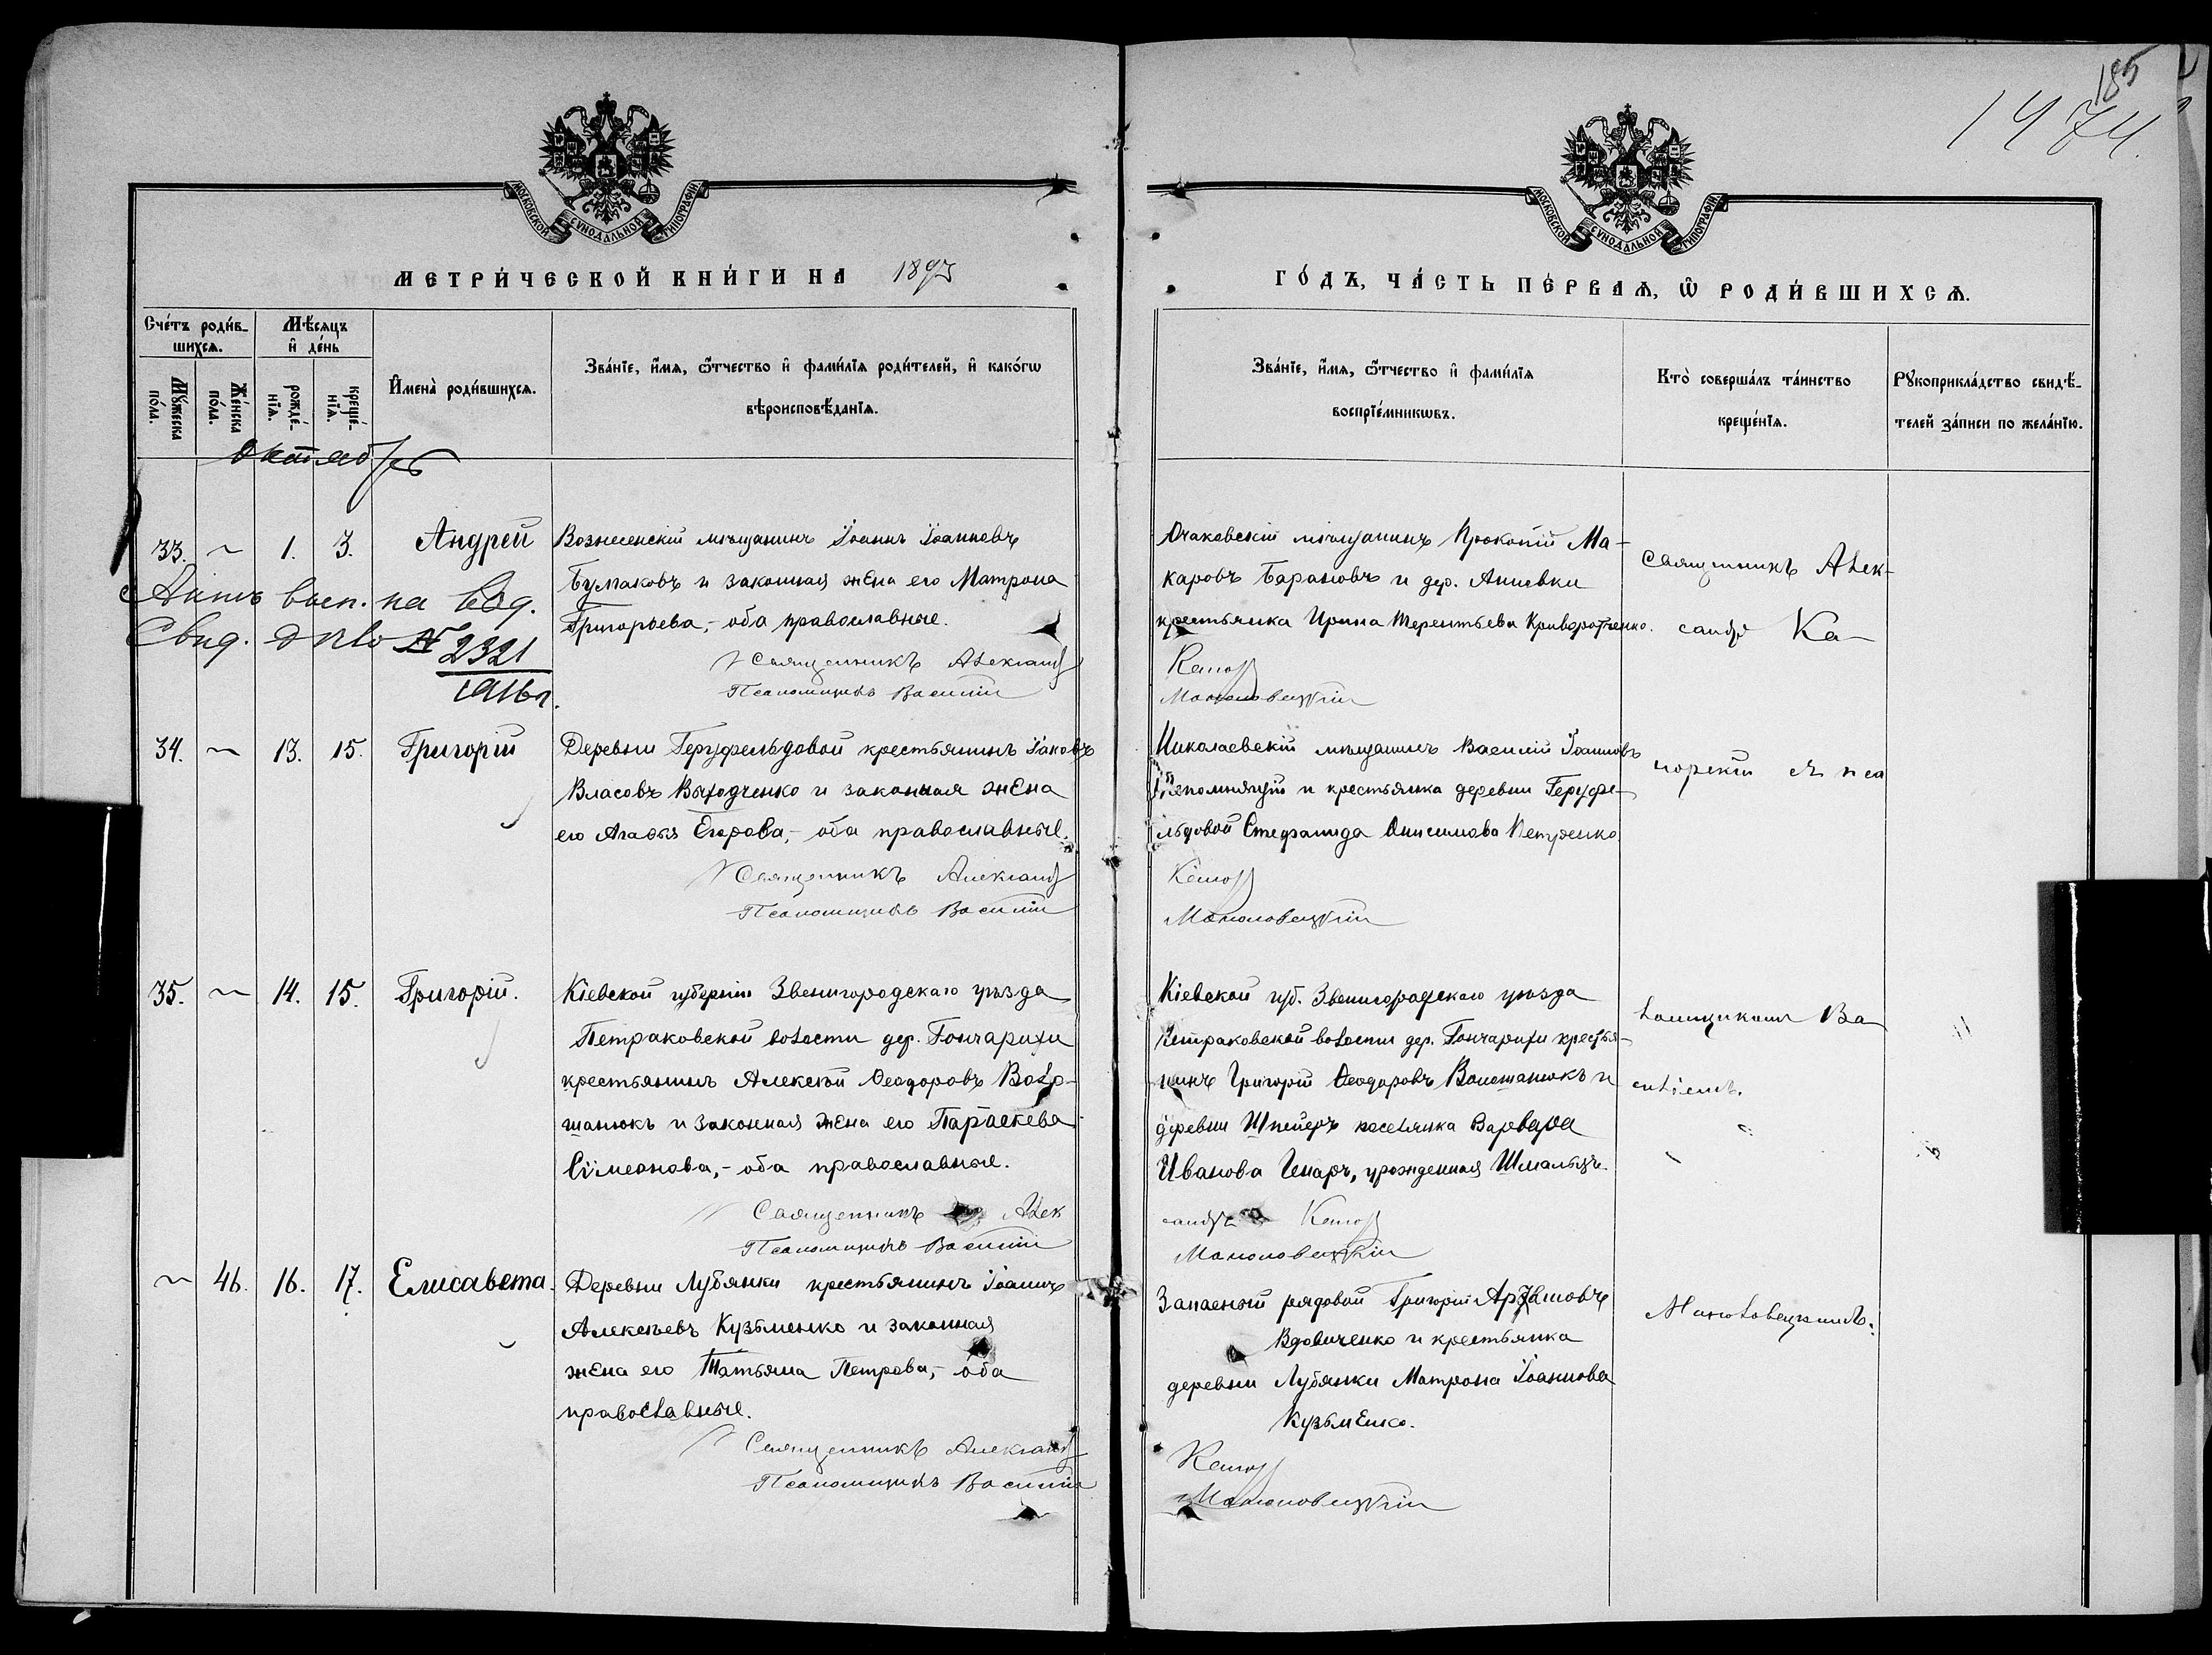 185
1474.
МОСКОВСКОЙ СѴНОДАЛЬНОЙ ТИПОГРАФІИ
МОСКОВСКОЙ СѴНОДАЛЬНОЙ ТИПОГРАФІИ
МЕТРИ́ЧЕСКОЙ КНИ́ГИ НА 1893
ГО́ДЪ, ЧА́СТЬ ПЕ́РВАѦ, Ѡ РОДИ́ВШИХСѦ.
Сче́тъ роди́вшихсѧ.
Мꙋ́жеска по́ла.
Же́нска по́ла.
Мѣ́сѧцъ и҆ де́нь
рожде́нїѧ.
креще́нїѧ.
И҆мена̀ роди́вшихсѧ.
Зва́нїе, и҆́мѧ, ѻ҆́тчество и҆ фами́лїѧ роди́телей, и҆ како́гѡ
вѣроисповѣ́данїѧ.
Зва́нїе, и҆́мѧ, ѻ҆́тчество и҆ фами́лїѧ
воспрїе́мникѡвъ.
Кто̀ соверша́лъ та́инство
креще́нїѧ.
Рꙋкоприкла́дство свидѣ́-
телей за́писи по жела́нїю.
Октябрь
33. ~ 1. 3. Андрей
Вознесенскій мѣщанинъ Іоаннъ Іоанновъ
Бумаковъ и законная жена его Матрона
Григорьева,- оба православные.
Священникъ Александ
Псаломщикъ Василій
Актъ высл. на
Свид. № 2321
1916 г.
Очаковскій мѣщанинъ Прокопій Ма-
каровъ Барановъ и дер. Анновки
крестьянка Ирина Терентьева Криворотченко.
Капор
Маньковецкій
Священникъ Алек-
сандръ Ка-
34. ~ 13. 15. Григорій
Деревни Герцфельдовой крестьянинъ Іаковъ
Власовъ Выходченко и законная жена
его Агафья Егорова,- оба православные.
Священникъ Александ
Псаломщикъ Василій
Николаевскій мѣщанинъ Василій Іоанновъ
Непомнящій и крестьянка деревни Герцфе-
льдовой Стефанида Онисимова Петренко.
Капор
Маньковецкій
порскій съ пса
35. ~ 14. 15. Григорій.
Кіевской губерніи Звенигородскаго уѣзда
Петраковской волости дер. Гончарихи
крестьянинъ Алексѣй Ѳеодоровъ Воло-
шанюкъ и законная жена его Параскева
Сѵмеонова,- оба православные.
Священникъ Алек
Псаломщикъ Василій
Кіевской губ. Звенигородскаго уѣзда
Петраковской волости дер. Гончарихи крестья-
нинъ Григорій Ѳеодоровъ Волошанюкъ и
деревни Шпейеръ поселянка Варвара
Иванова Генаръ, урожденная Шмальцъ.
сандръ Капор
Маньковецкій
ломщикомъ Ва
силіемъ
~ 46. 16. 17. Елисавета.
Деревни Лубянки крестьянинъ Іоаннъ
Алексѣевъ Кузьменко и законная
жена его Татьяна Петрова,- оба
православные.
Священникъ Александ
Псаломщикъ Василій
Запасный рядовой Григорій
Вдовиченко и крестьянка
деревни Лубянки Матрона Іоаннова
Кузьменко.
Капор
Маньковецкій
Маньковецкимъ.